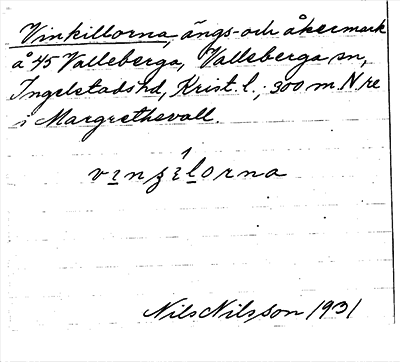 Vinkillorna, ängs- och åkermark
å 45 Valleberga, Valleberga sn,
Ingelstads hd, Krist. l.; 300 m. N re
i Margrethevall.
Nils Nilsson 1931